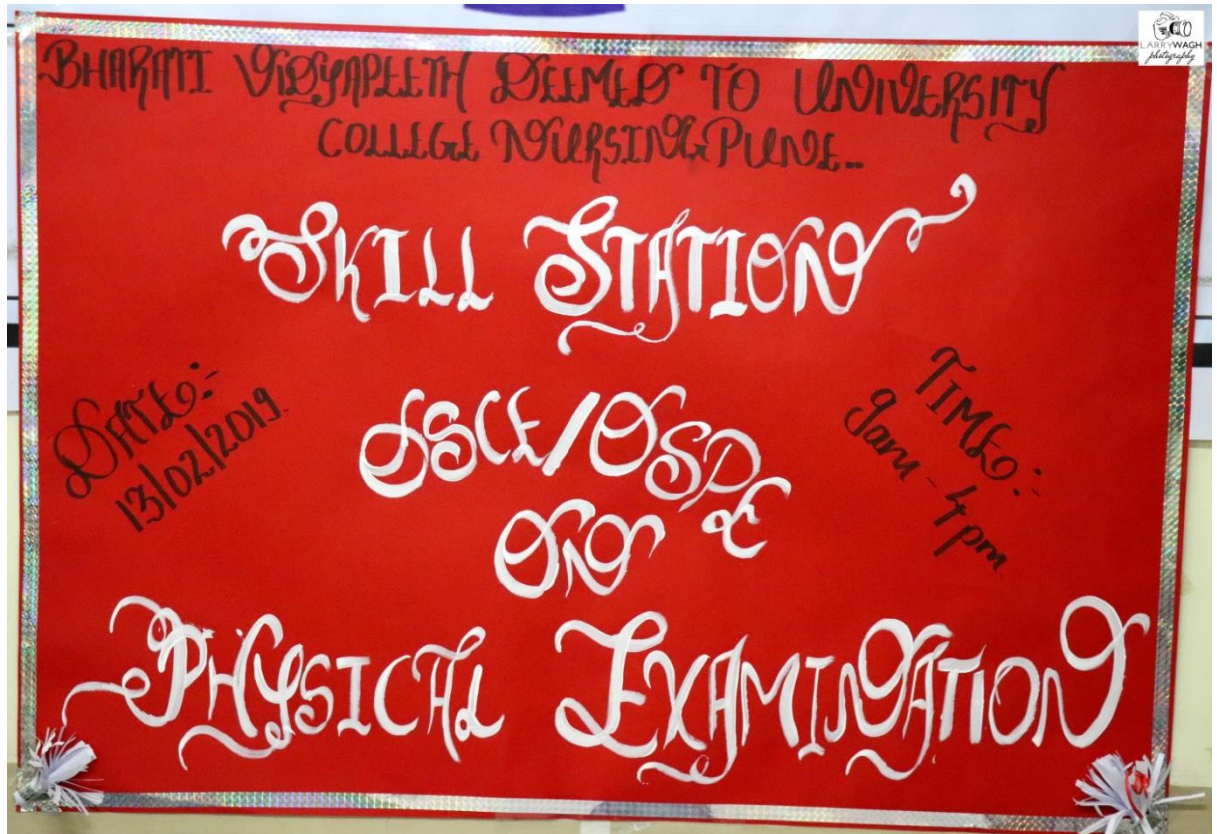 LARRYWAGH
photography
BHARATI VIDYAPEETH DEEMED TO UNIVERSITY
COLLEGE NURSING PUNE..
SKILL STATION
DATE:-
13/02/2019.
OSCE/OSPE
ON
TIME:-
9am - 4pm
PHYSICAL EXAMINATION